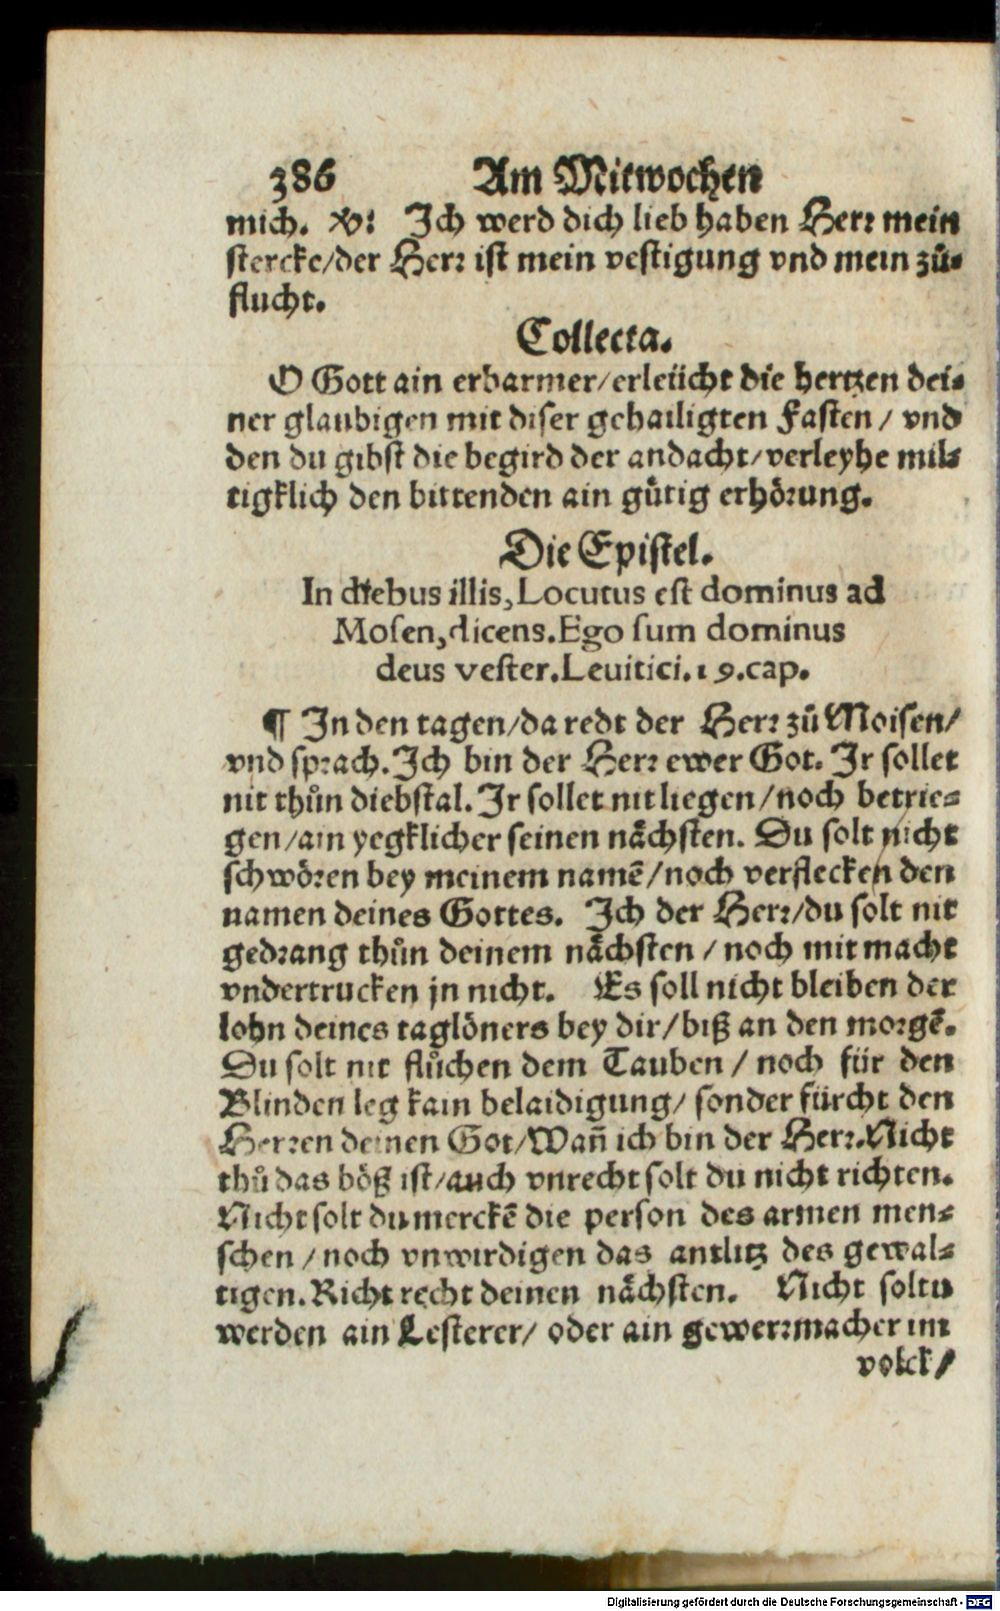 386 Am Mitwochen
mich. ℣: Ich werd dich lieb haben Herr mein
stercke/der Herr ist mein vestigung vnd mein zů⸗
flucht.
Collecta.
O Gott ain erbarmer/erleücht die hertzen dei⸗
ner glaubigen mit diser gehailigten Fasten/ vnd
den du gibst die begird der andacht/verleyhe mil⸗
tigklich den bittenden ain gütig erhörung.
Die Epistel.
In diebus illis, Locutus est dominus ad
Mosen, dicens. Ego sum dominus
deus vester. Leuitici. 19. cap.
¶ In den tagen/da redt der Herr zů Moisen/
vnd sprach. Ich bin der Herr ewer Got. Ir sollet
nit thůn diebstal. Ir sollet nit liegen/noch betrie⸗
gen/ain yegklicher seinen nächsten. Du solt nicht
schwören bey meinem namē/noch verflecken den
namen deines Gottes. Ich der Herr/du solt nit
gedrang thůn deinem nächsten/noch mit macht
vndertrucken jn nicht. Es soll nicht bleiben der
lohn deines taglöners bey dir/biß an den morgē.
Du solt nit flůchen dem Tauben/noch für den
Blinden leg kain belaidigung/ sonder fürcht den
Herren deinen Got/Wañ ich bin der Herr. Nicht
thů das böß ist/auch vnrecht solt du nicht richten.
Nicht solt du merckē die person des armen men⸗
schen/noch vnwirdigen das antlitz des gewal⸗
tigen. Richt recht deinen nächsten. Nicht soltu
werden ain Lesterer/ oder ain gewerrmacher im
volck/
Digitalisierung gefördert durch die Deutsche Forschungsgemeinschaft - DFG